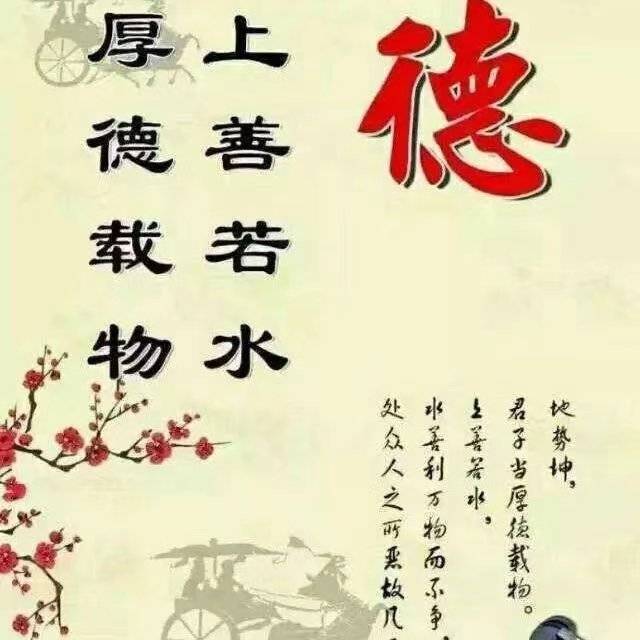 德
上善若水
厚德载物
地势坤。
君子当厚德载物。
上善若水。
水善利万物而不争,
处众人之所恶故几